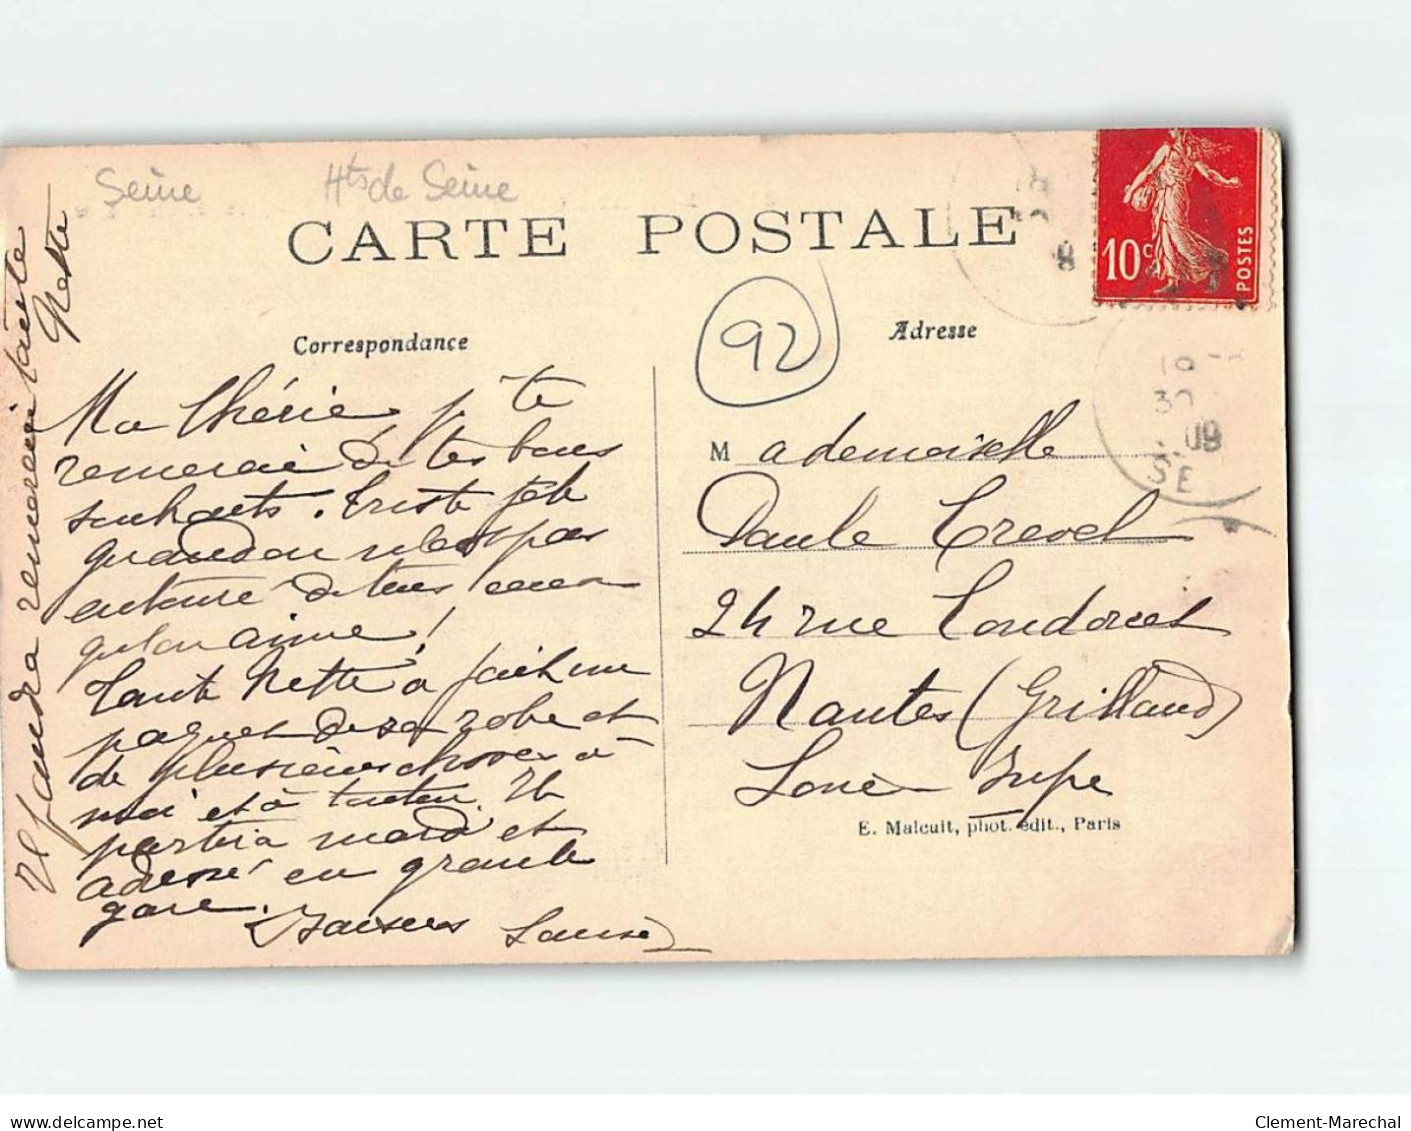 Seine
Hts de Seine
CARTE POSTALE
10c
POSTES
Correspondance
92
Adresse
Ma Chérie je te
remercie de tes bons
souhaits. Triste fête
quand on n'est pas
entouré de tous ceux
qu'on aime !
Tante Nette a fait un
paquet de sa robe et
de plusieurs choses à
moi et à tonton. Il
partira mardi et
adressé en grande
gare.
Baisers Louise
Il faudra remercier tante
Nette
Mademoiselle
Paule Trevel
24 rue
Nantes (Grillaud)
Loire Infre
E. Malcuit, phot. édit., Paris
18
30
09
SE
Clement-Marechal
www.delcampe.net